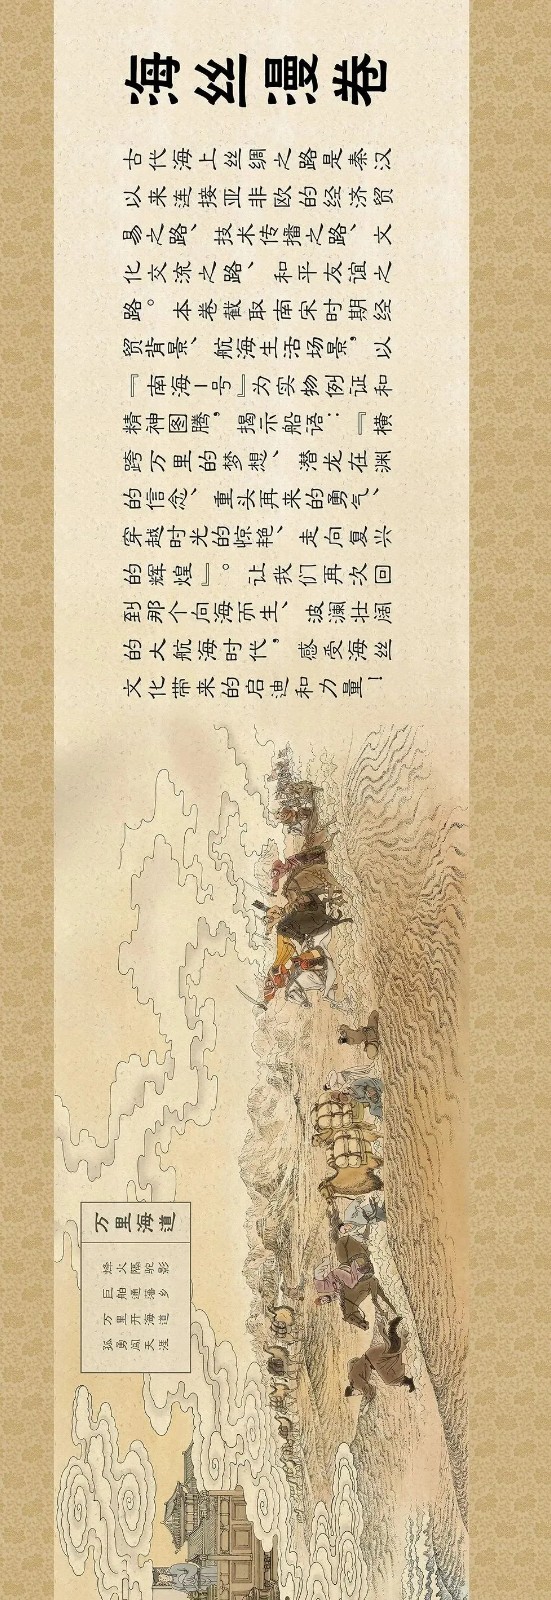 海丝漫卷
古代海上丝绸之路是秦汉
以来连接亚非欧的经济贸
易之路、技术传播之路、文
化交流之路、和平友谊之
路。本卷截取南宋时期经
贸背景、航海生活场景，以
『南海一号』为实物例证和
精神图腾，揭示船语：『横
跨万里的梦想、潜龙在渊
的信念、重头再来的勇气、
穿越时光的惊艳、走向复兴
的辉煌』。让我们再次回
到那个向海而生、波澜壮阔
的大航海时代，感受海丝
文化带来的启迪和力量！
万里海道
烽火隔驼影
巨舶通藩乡
万里开海道
孤勇闯天涯